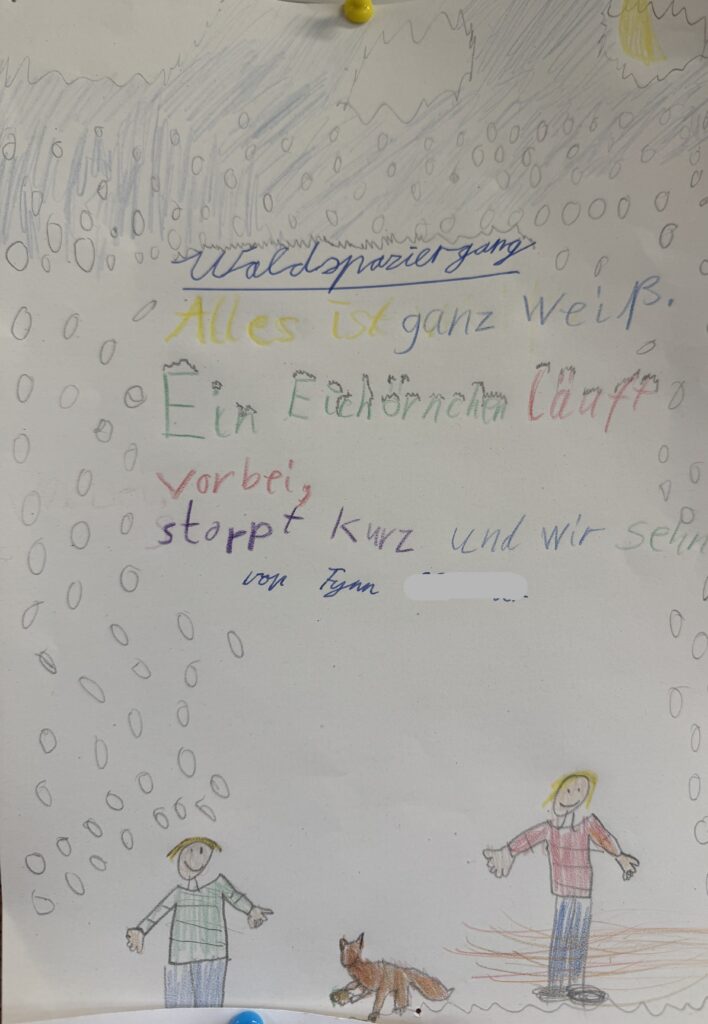 Waldspaziergang
Alles ist ganz weiß.
Ein Eichörnchen läuft
vorbei,
stoppt kurz und wir sehn
von Fynn